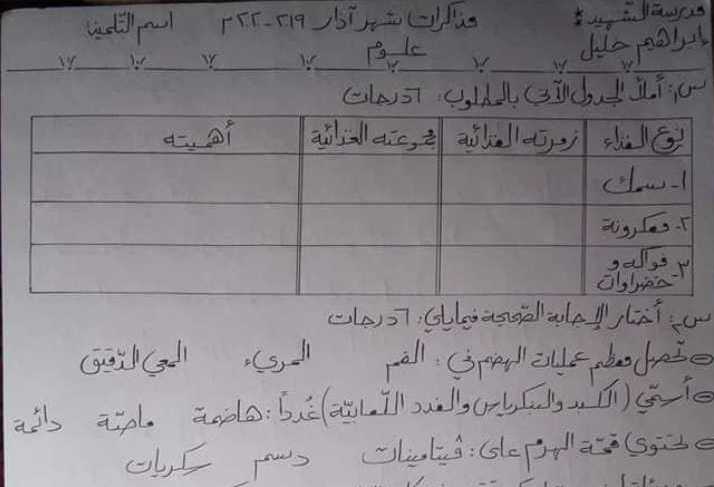 مدرسة الشهيد مذاكرات شهر آذار ٢١٩-٢٢٠٢م اسم التلميذ:
إبراهيم خليل علوم
س١: أملأ الجدول الآتي بالمطلوب: ٦ درجات
نوع الغذاء زمرته الغذائية مجموعته الغذائية أهميته
١- سمك
٢- معكرونة
٣- فواكه و
خضراوات
س٢: أختار الإجابة الصحيحة فيما يلي: ٦ درجات
تحصل معظم عمليات الهضم في: الفم المريء المعي الدقيق
أسمّي (الكبد والبنكرياس والغدد اللّعابيّة) غُدداً: هاضمة ماصّة دائمة
تحتوي قمّة الهرم على: ڤيتامينات دسم سكريات